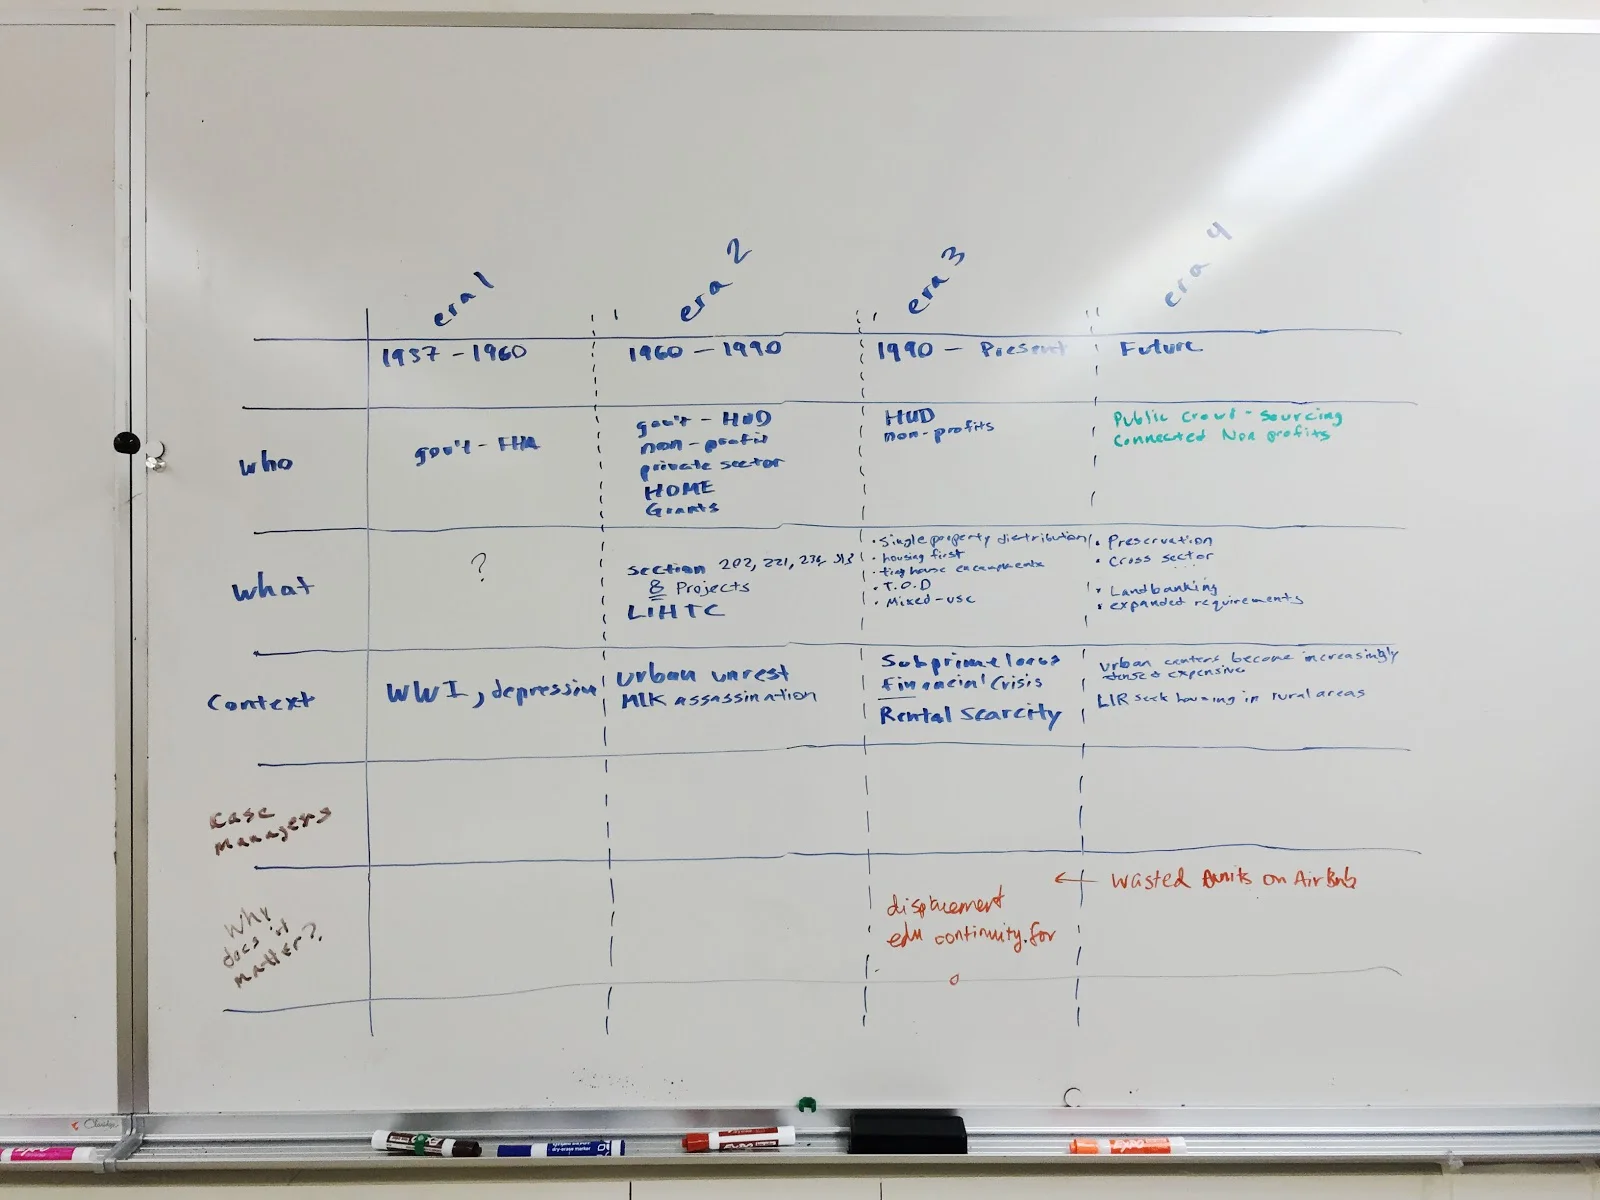 era 1
era 2
era 3
era 4
1937 - 1960
1960 - 1990
1990 - Present
Future
who
gov't - FHA
gov't - HUD
non-profit
private sector
HOME
Grants
HUD
non-profits
Public Crowd-sourcing
Connected Non profits
what
?
section 202, 221, 236,
8 Projects
LIHTC
• Single property distribution
• housing first
• tiny house encampments
• T.O.D
• Mixed-use
• Preservation
• Cross sector
• Landbanking
• expanded requirements
Context
WWI, depression
Urban unrest
MLK assassination
Subprime loans
Financial Crisis
Rental Scarcity
Urban centers become increasingly
dense & expensive
LIR seek housing in rural areas
case
managers
Why
does it
matter?
displacement
edu continuity for
← wasted units on AirBnb
EXPO
EXPO